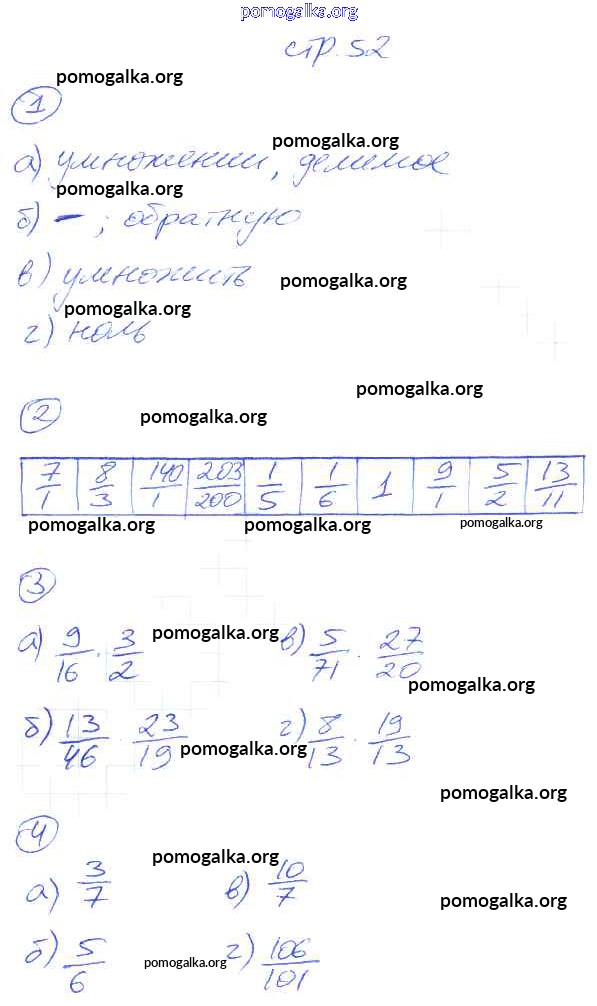 pomogalka.org
стр. 52
pomogalka.org
1
pomogalka.org
а) умножении, делимое
pomogalka.org
б) – ; обратную
в) умножить
pomogalka.org
pomogalka.org
г) ноль
pomogalka.org
2
pomogalka.org
7/1 8/3 140/1 203/200 1/5 1/6 1 9/1 5/2 13/11
pomogalka.org pomogalka.org pomogalka.org
3
pomogalka.org
а) 9/16 · 3/2 в) 5/71 · 27/20
pomogalka.org
б) 13/46 · 23/19 г) 8/13 · 19/13
pomogalka.org
pomogalka.org
4
pomogalka.org
а) 3/7 в) 10/7
pomogalka.org
б) 5/6 г) 106/101
pomogalka.org